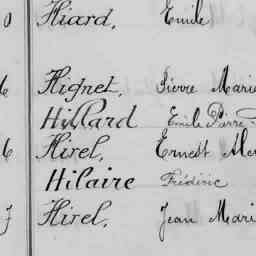 0 Hiard, Emile
6 Hignet, Pierre Marie
Hillard Emile Pierre
6 Hirel, Ernest
Hilaire Frédéric
Hirel, Jean Mari